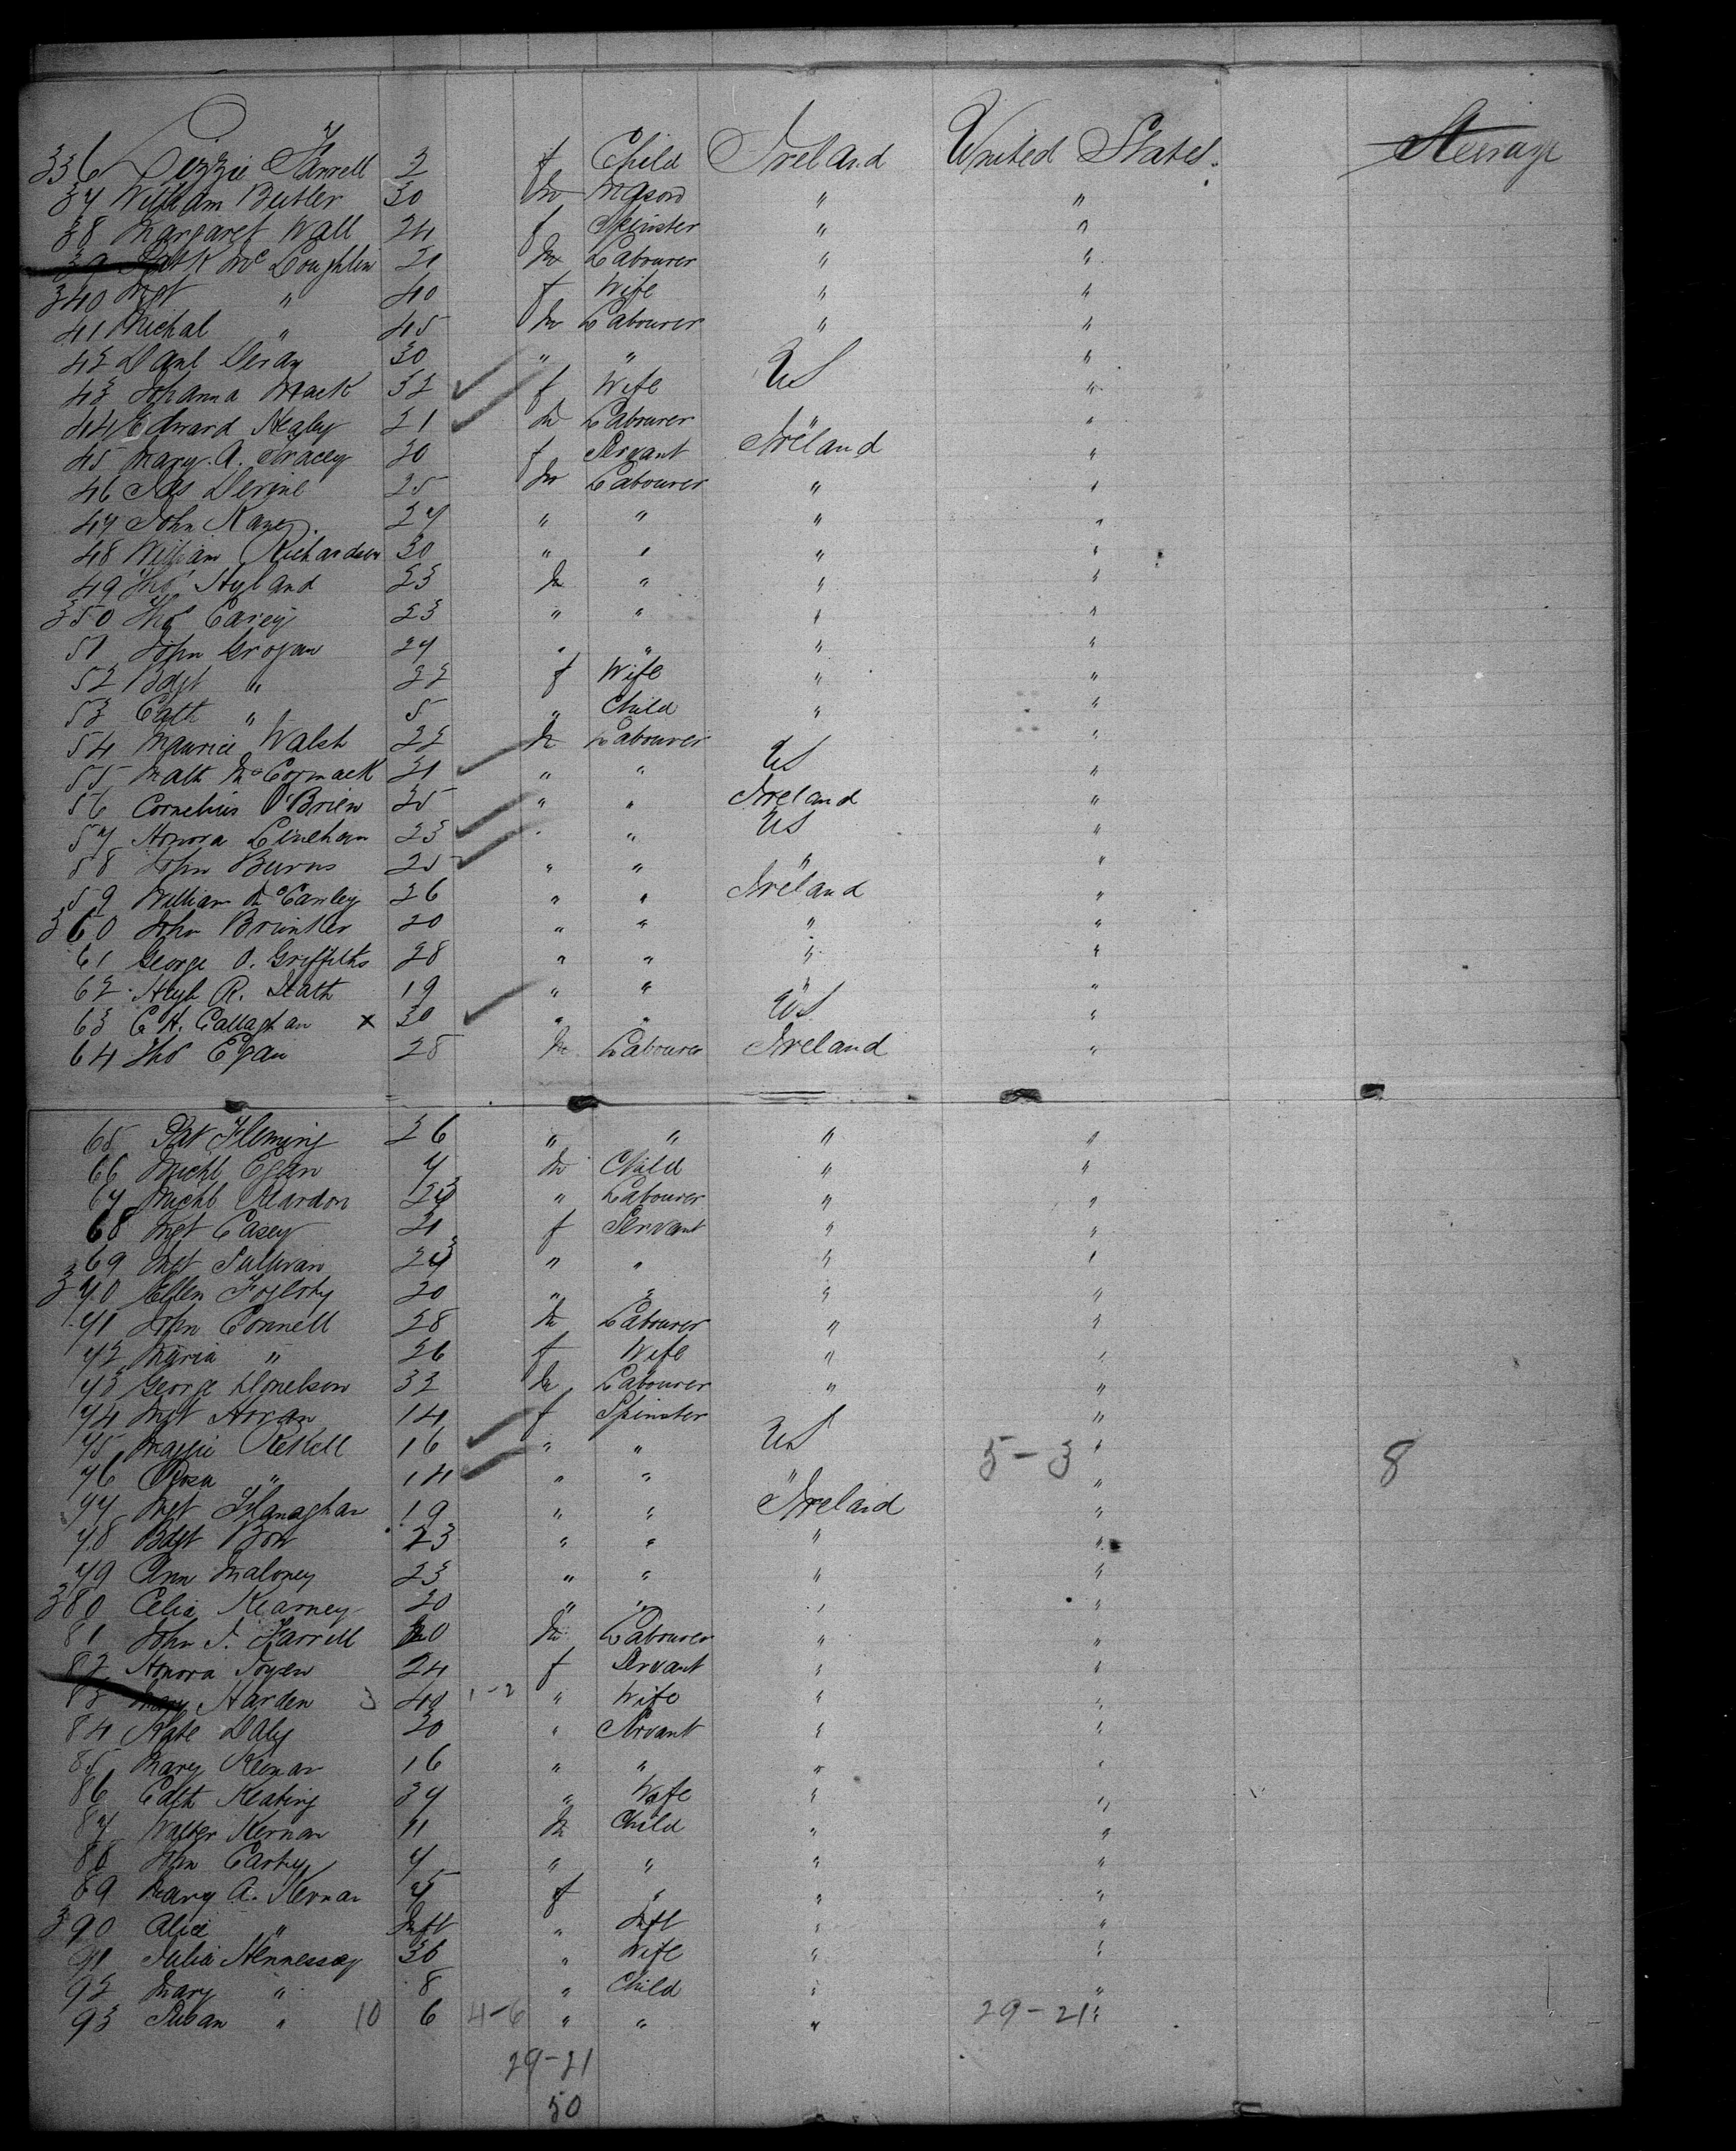 336 Lizzie Farrell 3 f Child Ireland United States. Steerage
37 William Butler 30 m Mason " "
38 Margaret Wall 24 f Spinster " "
39 Patk Mc Loughlin 21 m Labourer " "
340 Mgt " 40 f Wife " "
41 Michal " 45 m Labourer " "
42 Danl 30 " " US "
43 Johanna Mack 32 f Wife "
44 Edward Healey 21 m Labourer " "
45 Mary. A. Tracey 30 f Servant Ireland "
46 Jas Devine 25 m Labourer " "
47 John Kane 27 " " " "
48 William Richardson 30 " " " "
49 Thos Hyland 23 m " " "
350 Thos Carey 23 " " " "
51 John Grogan 27 " " " "
52 Bdgt " 32 f Wife " "
53 Cath " 5 " Child " "
54 Maurice Walsh 22 m Labourer "
55 Math McCormack 31 " " US "
56 Cornelius O'Brien 35 " " Ireland "
57 Honora Linehan 23 " " US "
58 John Burns 25 " " " "
59 William McCawley 26 " " Ireland "
360 John Brunker 20 " " " "
61 George O. Griffiths 28 " " " "
62 Hugh R. 19 " " " "
63 C H. Callaghan x 30 " " US "
64 Thos Egan 28 m Labourer Ireland "
65 Pat Fleming 26 " " " "
66 Michl Egan 7 m Child " "
67 Michl 23 " Labourer " "
68 Mgt Casey 21 f Servant " "
69 Mgt Sullivan 23 " " " "
370 Ellen 20 " " " "
71 John Connell 28 m Labourer " "
72 Maria " 26 f Wife " "
73 George Donelson 32 m Labourer " "
74 Mgt Horan 14 f Spinster "
75 Maggie 16 " " US 5-3 " 8
76 Rosa " 14 " " " "
77 Mgt Flanaghan 19 " " Ireland "
78 Bdgt 23 " " " "
79 Ann Maloney 23 " " " "
380 Celia Kearney 20 " " " "
81 John J. Farrell 20 m Labourer " "
82 Honora 24 f Servant " "
83 Mary Harden 3 40 1-2 " Wife " "
84 Kate Daly 20 " Servant " "
85 Mary 16 " " " "
86 Cath Keating 37 " Wife " "
87 Walter Kernan 11 m Child " "
88 John 7 " " " "
89 Mary A. Kernan f " " "
390 Alice " Inft " Inft " "
91 Julia Hennessey 36 " Wife " "
92 Mary " 8 " Child " "
93 Susan " 10 6 4-6 " " " 29-21 "
29-21
50